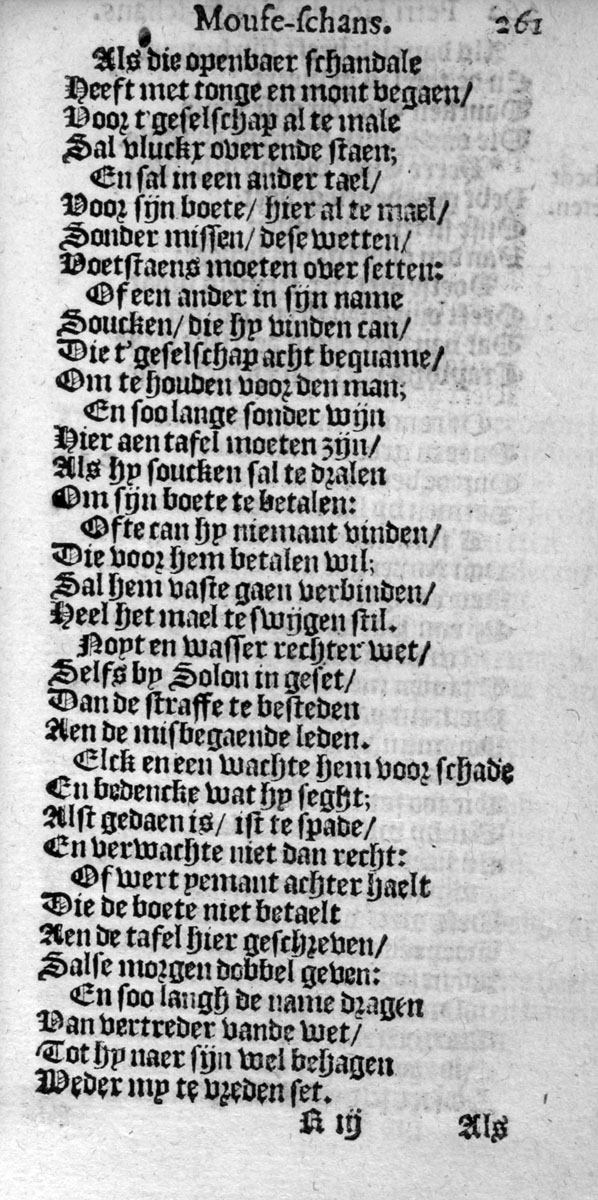 Mouse-schans. 261
Als die openbaer schandale
Heeft met tonge en mont begaen/
Voor t'geselschap al te male
Sal vluckx over ende staen;
En sal in een ander tael/
Voor sijn boete/ hier al te mael/
Sonder missen/ dese wetten/
Voetstaens moeten over setten:
Of een ander in sijn name
Soucken/ die hy vinden can/
Die t'geselschap acht bequame/
Om te houden voor den man;
En soo lange sonder wijn
Hier aen tafel moeten zijn/
Als hy soucken sal te dralen
Om sijn boete te betalen:
Ofte can hy niemant vinden/
Die voor hem betalen wil;
Sal hem vaste gaen verbinden/
Heel het mael te swijgen stil.
Noyt en wasser rechter wet/
Selfs by Solon in geset/
Dan de straffe te besteden
Aen de misbegaende leden.
Elck en een wachte hem voor schade
En bedencke wat hy seght;
Alst gedaen is/ ist te spade/
En verwachte niet dan recht:
Of wert yemant achter haelt
Die de boete niet betaelt
Aen de tafel hier geschreven/
Salse morgen dobbel geven:
En soo langh de name dragen
Van vertreder vande wet/
Tot hy naer sijn wel behagen
Weder my te vreden set.
R iij Als